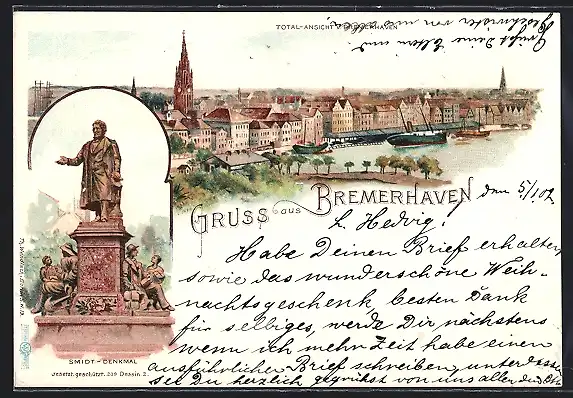 TOTAL-ANSICHT v. BREMERHAVEN
Grüsst Deine Eltern und
Geschwister von uns allen.
GRUSS aus BREMERHAVEN
den 5/1 02
L. Hedwig!
Habe Deinen Brief erhalten
sowie das wunderschöne Weih-
nachtsgeschenk besten Dank
für selbiges, werde Dir nächstens
wenn ich mehr Zeit habe einen
ausführlichen Brief schreiben, unterdess
sei Du herzlich gegrüsst von uns allen
SMIDT-DENKMAL
Gesetzl. geschützt. 239 Dessin 2.